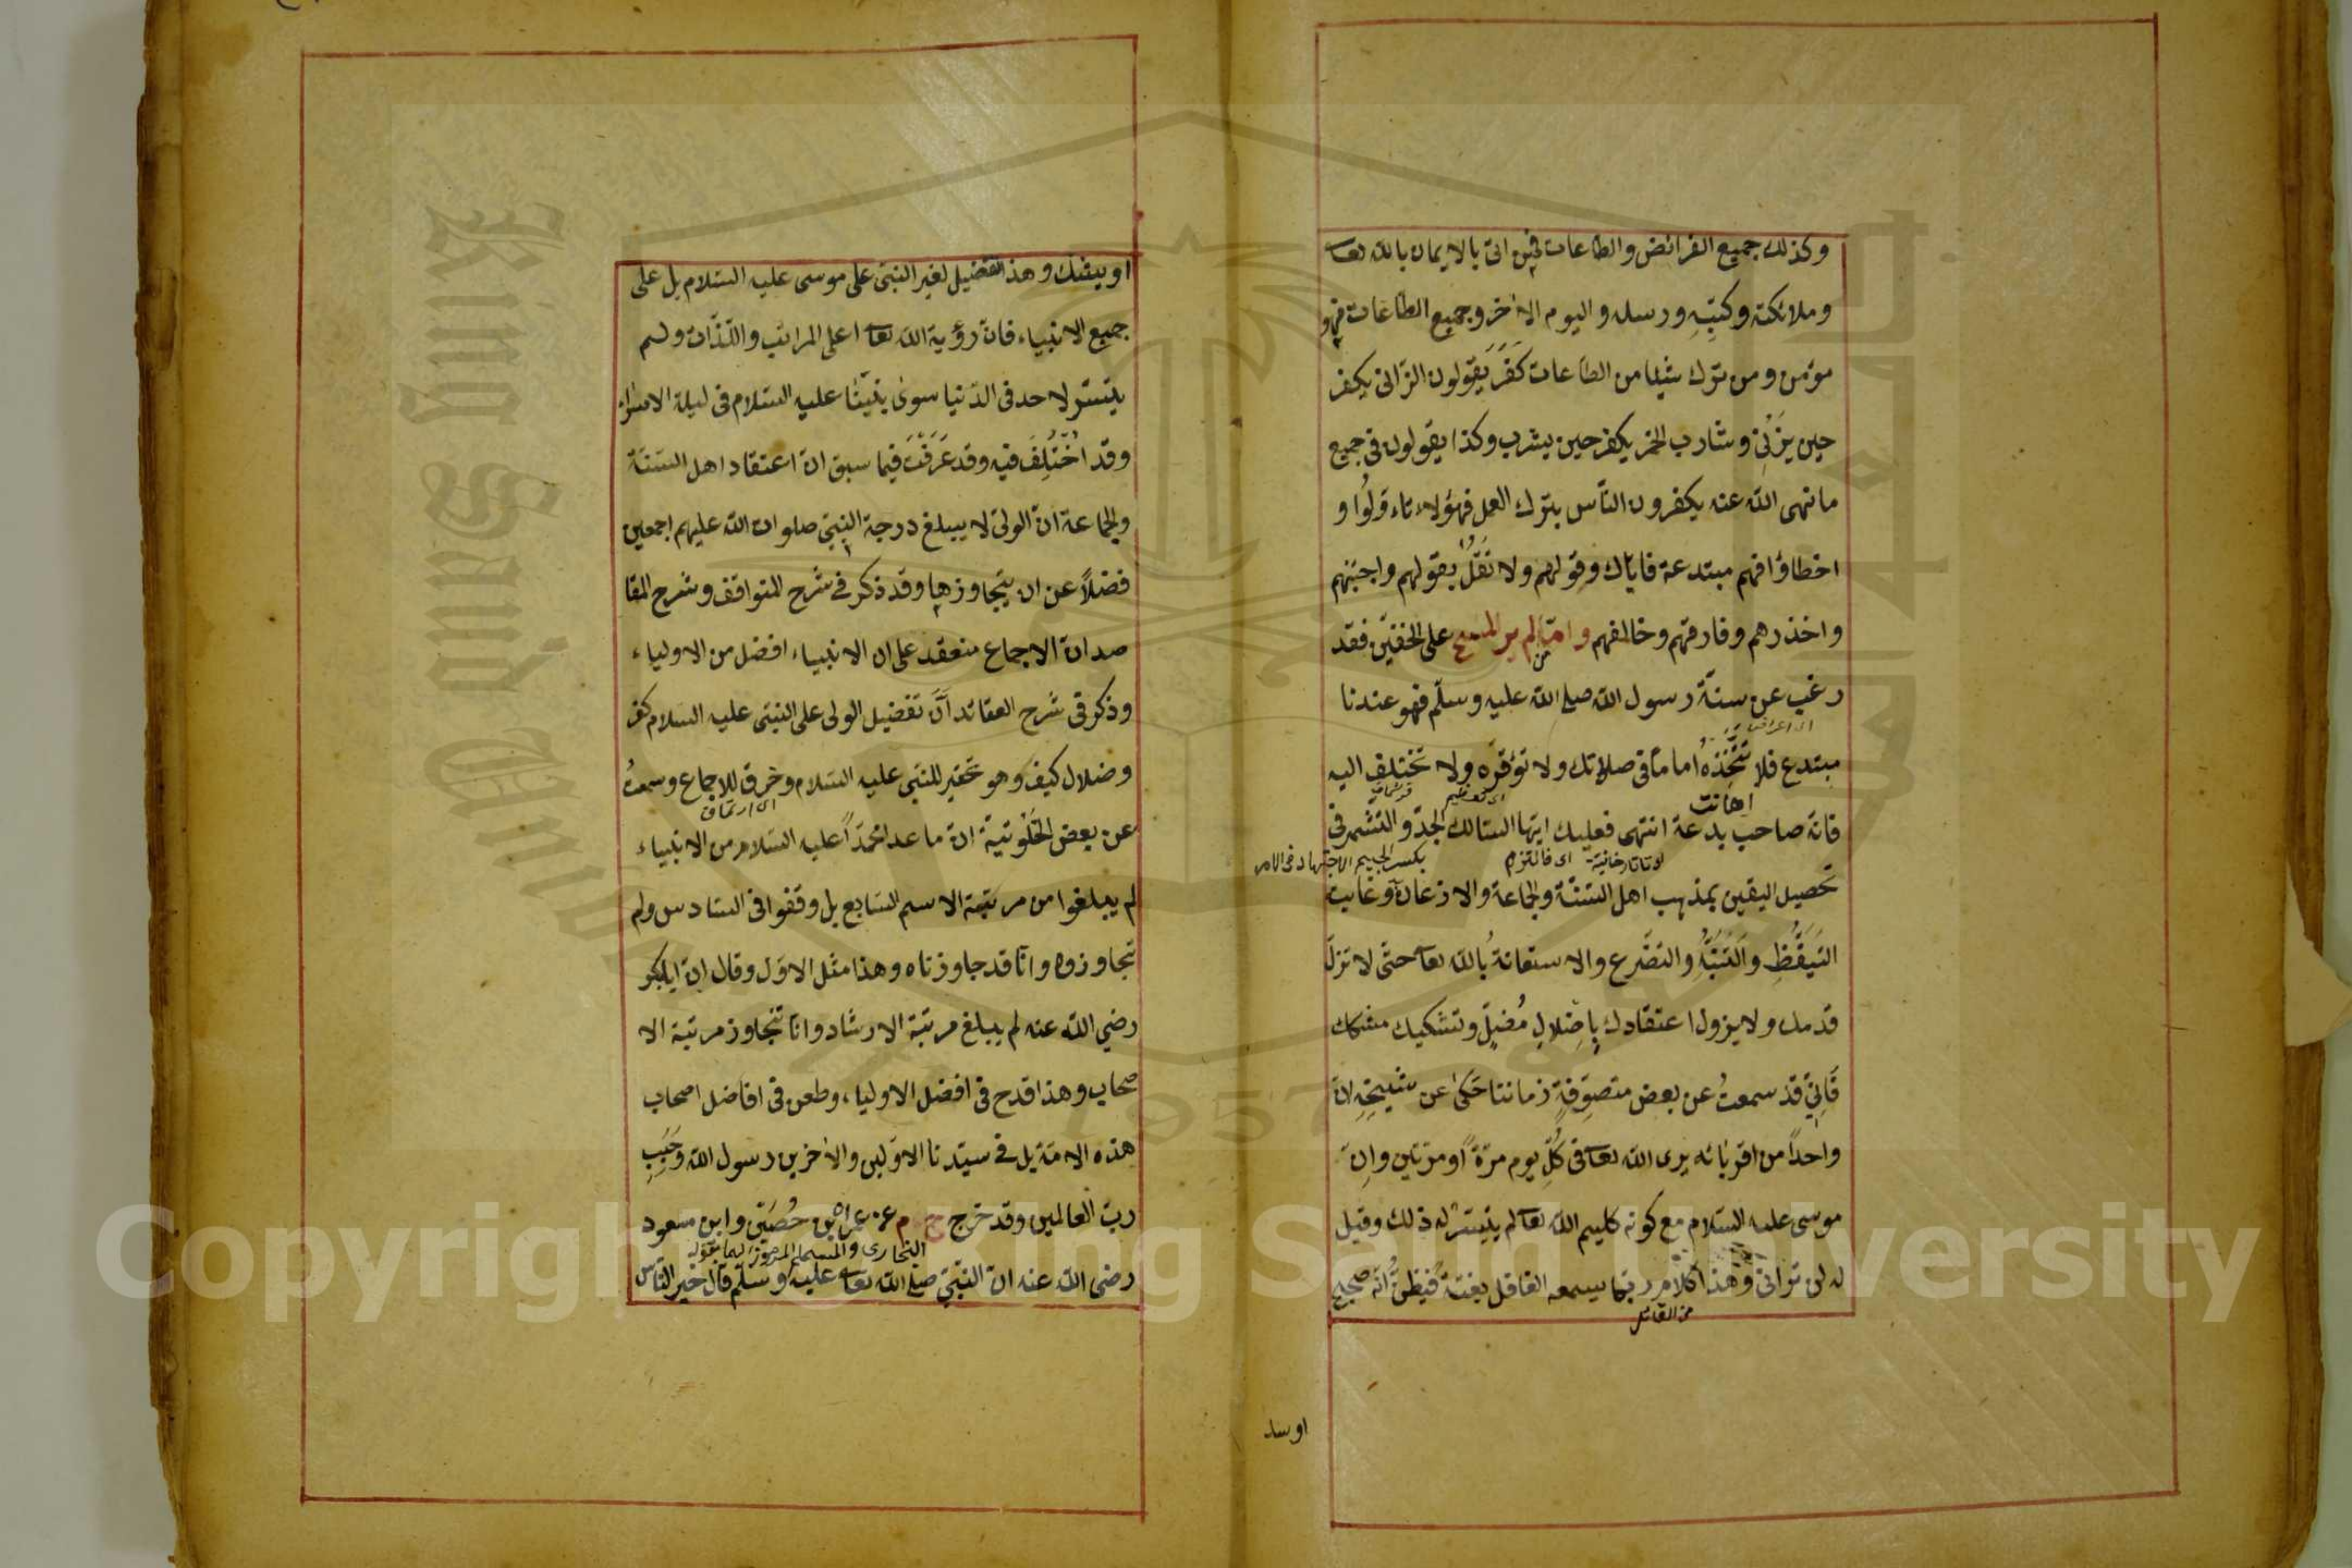 وكذلك جميع الفرائض والطاعات فمن اتى بالايمان بالله تعا
وملائكته وكتبه ورسله واليوم الاخر وجميع الطاعات فهو
مؤمن ومن ترك شيئا من الطاعات كَفَرَ يقولون الزانى يكفر
حين يَزْنِى وشارب الخمر يكفر حين يشرب وكذا يقولون فى جميع
ما نهى الله عنه يكفرون الناس بترك العمل فهؤلاء تاءوّلوا و
اخطاؤا فهم مبتدعة فاياك وقولهم ولا تَقُلْ بقولهم واجتنبهم
واحذرهم وفارقهم وخالفهم واما من لم ير المسح على الخفين فقد
رغب عن سنة رسول الله صلى الله عليه وسلم فهو عندنا
مبتدع فلا تتَّخِذْهُ اماما فى صلاتك ولا توقره ولا تختلف اليه
اهانت
فانه صاحب بدعة انتهى فعليك ايها السالك الجدّ والتشمر فى
او تاتارخانية اى فالتزم
بكسر الجيم الاجتهاد فى الامر
تحصيل اليقين بمذهب اهل السنة والجماعة والاذعان وغاية
التَيَقُّظِ والتَنَبُّهِ والتضرع والاستعانة بالله تعا حتى لا تزلّ
قدمك ولا يزول اعتقادك بِاِضلالِ مُضِلٍّ وتشكيك مشكك
فَاِنِّى قد سمعتُ عن بعض متصوِّفةِ زماننا حَكىٰ عن شيخِهِ انّ
واحداً من اقربائه يرى الله تعا فى كلّ يوم مرّةً او مرتين وانّ
موسى عليه السلام مع كونه كليم الله تعا لم يتيسّر له ذلك وقيل
له لن ترانى وهذا كلام ربما يسمعه الغافل بغتة فيظنّ انه صحيح
من القائل
او يشك وهذا تفضيل لغير النبى على موسى عليه السلام بل على
جميع الانبياء فانّ رؤية الله تعا اعلى المراتب واللّذّات ولم
يتيسّر لاحد فى الدنيا سوى نبيّنا عليه السلام فى ليلة الاسراء
وقد اُخْتُلِفَ فيه وقد عَرَفْتَ فيما سبق انّ اعتقاد اهل السنة
والجماعة انّ الولى لا يبلغ درجة النبى صلوات الله عليهم اجمعين
فضلاً عن ان يتجاوزها وقد ذكر فى شرح المواقف وشرح المقا
صد انّ الاجماع منعقد على ان الانبياء افضل من الاولياء
وذكر فى شرح العقائد انّ تفضيل الولى على النبى عليه السلام كفر
وضلال كيف وهو تحقير للنبى عليه السلام وخرق للاجماع وسمعتُ
عن بعض الخَلْوتيّة انّ ما عدا محمّداً عليه السلام من الانبياء
لم يبلغوا من مرتبة الاسم السابع بل وقفوا فى السادس ولم
تجاوزوه وانّا قد جاوزناه وهذا مثل الاوّل وقال انّ ابابكر
رضي الله عنه لم يبلغ مرتبة الارشاد وانا نتجاوز مرتبة الا
صحاب وهذا قدح فى افضل الاولياء وطعن فى افاضل اصحاب
هذه الامّة بل فى سيّدنا الاوّلين والاخرين رسول الله وحَبِيبِ
ربّ العالمين وقد خرج خ م عن عمران بن حُصَين وابن مسعود
البخارى والمسلم
رضى الله عنه انّ النبّي صلى الله تعا عليه وسلّم قال خير الناس